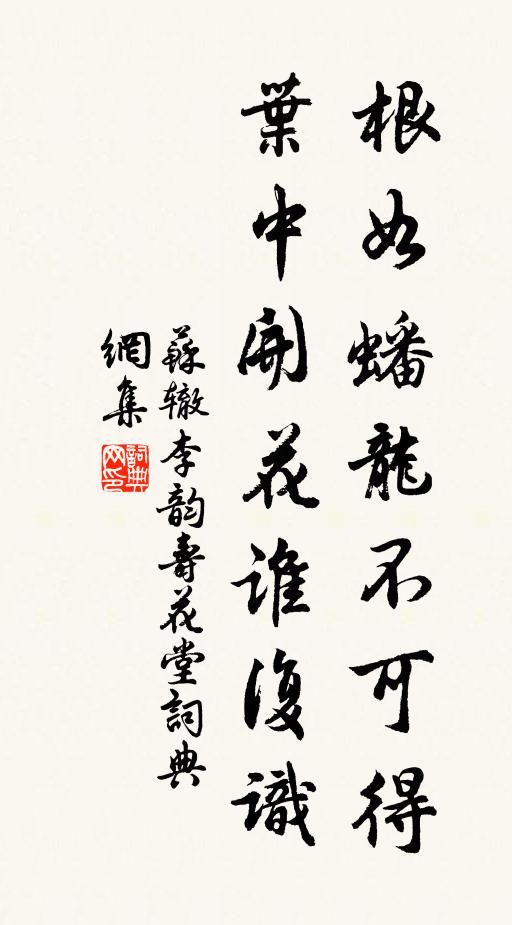 根如蟠龍不可得
葉中開花誰復識
蘇辙李韵壽花堂詞典
網集
詞典
网印